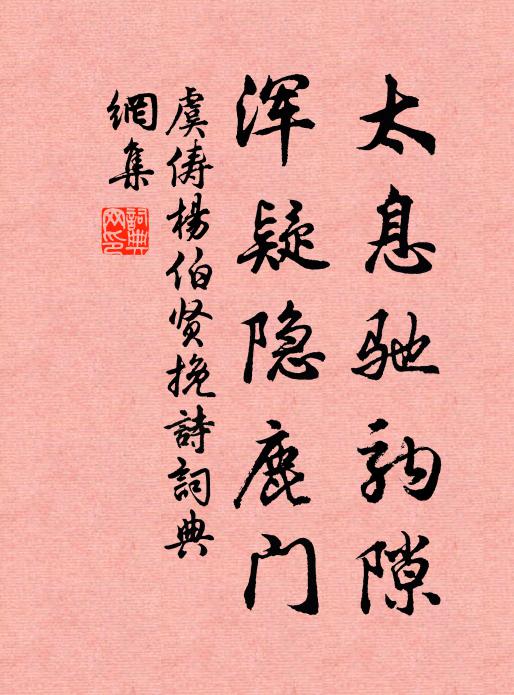 太息驰驹隙
浑疑隐鹿门
虞俦杨伯贤挽詩詞典
網集
詞典网印